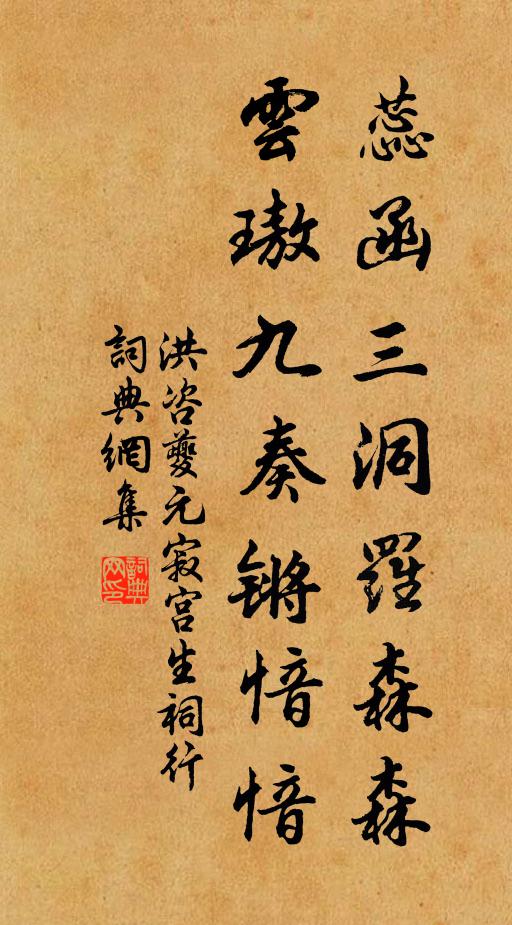 蕊函三洞羅森森
雲璈九奏锵愔愔
洪咨夔元寂宫生祠行
詞典網集
詞典网印